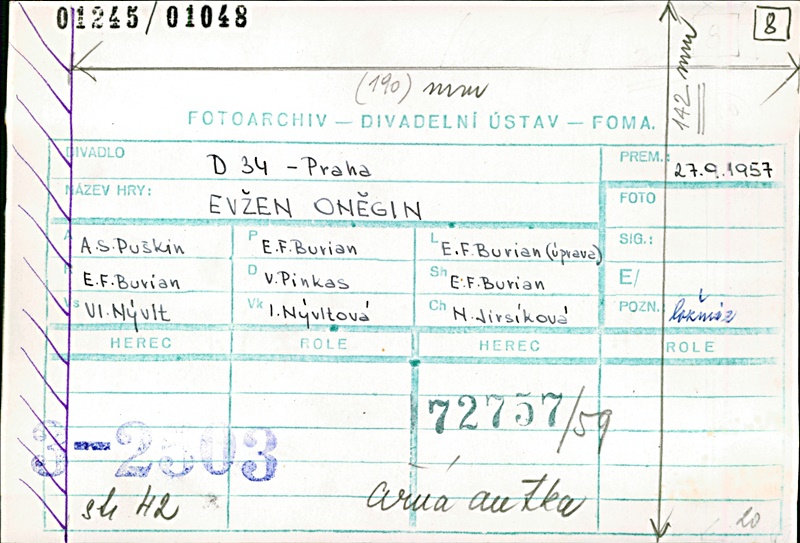 01245/01048
8
(190) mm
142 mm
FOTOARCHIV — DIVADELNÍ ÚSTAV — FOMA.
DIVADLO D 34 - Praha
PREM.: 27.9.1957
NÁZEV HRY: EVŽEN ONĚGIN
FOTO
A A.S.Puškin P E.F.Burian L E.F.Burian (úprava)
SIG.:
E.F.Burian D V.Pinkas Sh E.F.Burian
E/
Vs Vl.Nývlt Vk I.Nývltová Ch N.Jirsíková
POZN.:
HEREC ROLE HEREC ROLE
72757/59
3-2503
sh 42
20